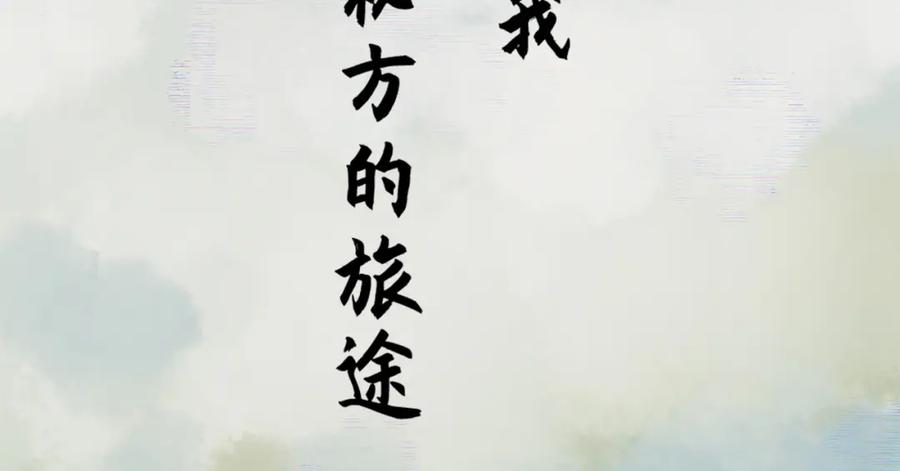 我
方的旅途